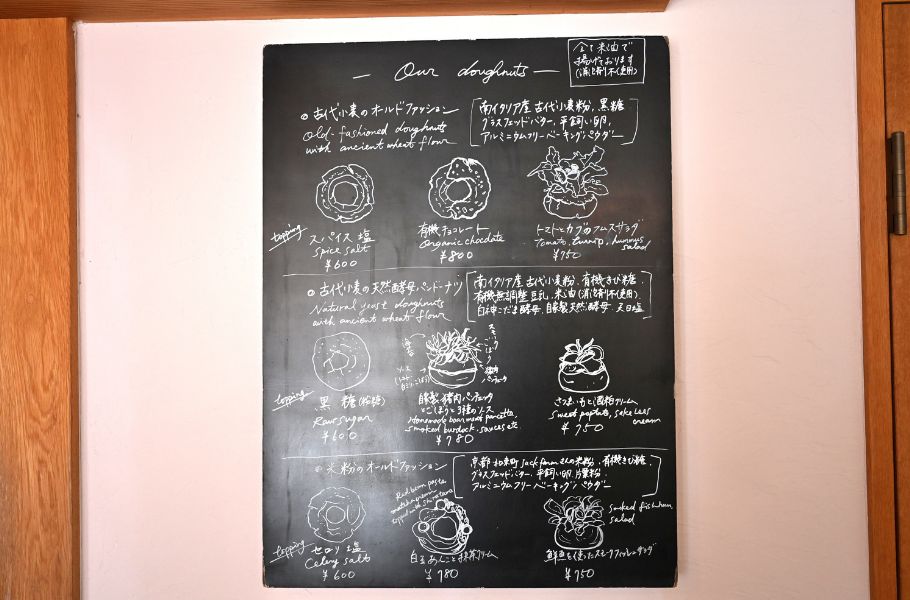 Our doughnuts
全て米油で
揚げております
(消泡剤不使用)
古代小麦のオールドファッション
Old-fashioned doughnuts
with ancient wheat flour
南イタリア産 古代小麦粉、黒糖
グラスフェッドバター、平飼い卵、
アルミニウムフリーベーキングパウダー
topping
スパイス塩
spice salt
¥600
有機チョコレート
organic chocolate
¥800
トマトとカブのフムスサラダ
Tomato, turnip, hummus
salad
¥750
古代小麦の天然酵母パンドーナツ
Natural yeast doughnuts
with ancient wheat flour
南イタリア産 古代小麦粉、有機きび糖、
有機無調整豆乳、米油(消泡剤不使用)
白神こだま酵母、自家製天然酵母、天日塩
topping
黒糖(粉糖)
Raw sugar
¥600
ソース
自家製猪肉パンチェッタ
とごぼうと3種のソース
Homemade boar meat pancetta,
smoked burdock, sauces etc.
¥780
さつまいもと酒粕クリーム
sweet potato, sake lees
cream
¥750
米粉のオールドファッション
京都 和束町 Jack farmさんの米粉、有機きび糖、
グラスフェッドバター、平飼い卵、片栗粉、
アルミニウムフリーベーキングパウダー
topping
セロリ塩
Celery salt
¥600
Red bean paste
matcha cream
topped with Shiratama
白玉あんこと抹茶クリーム
¥780
smoked fish
salad
鮮魚を使ったスモークフィッシュサラダ
¥750